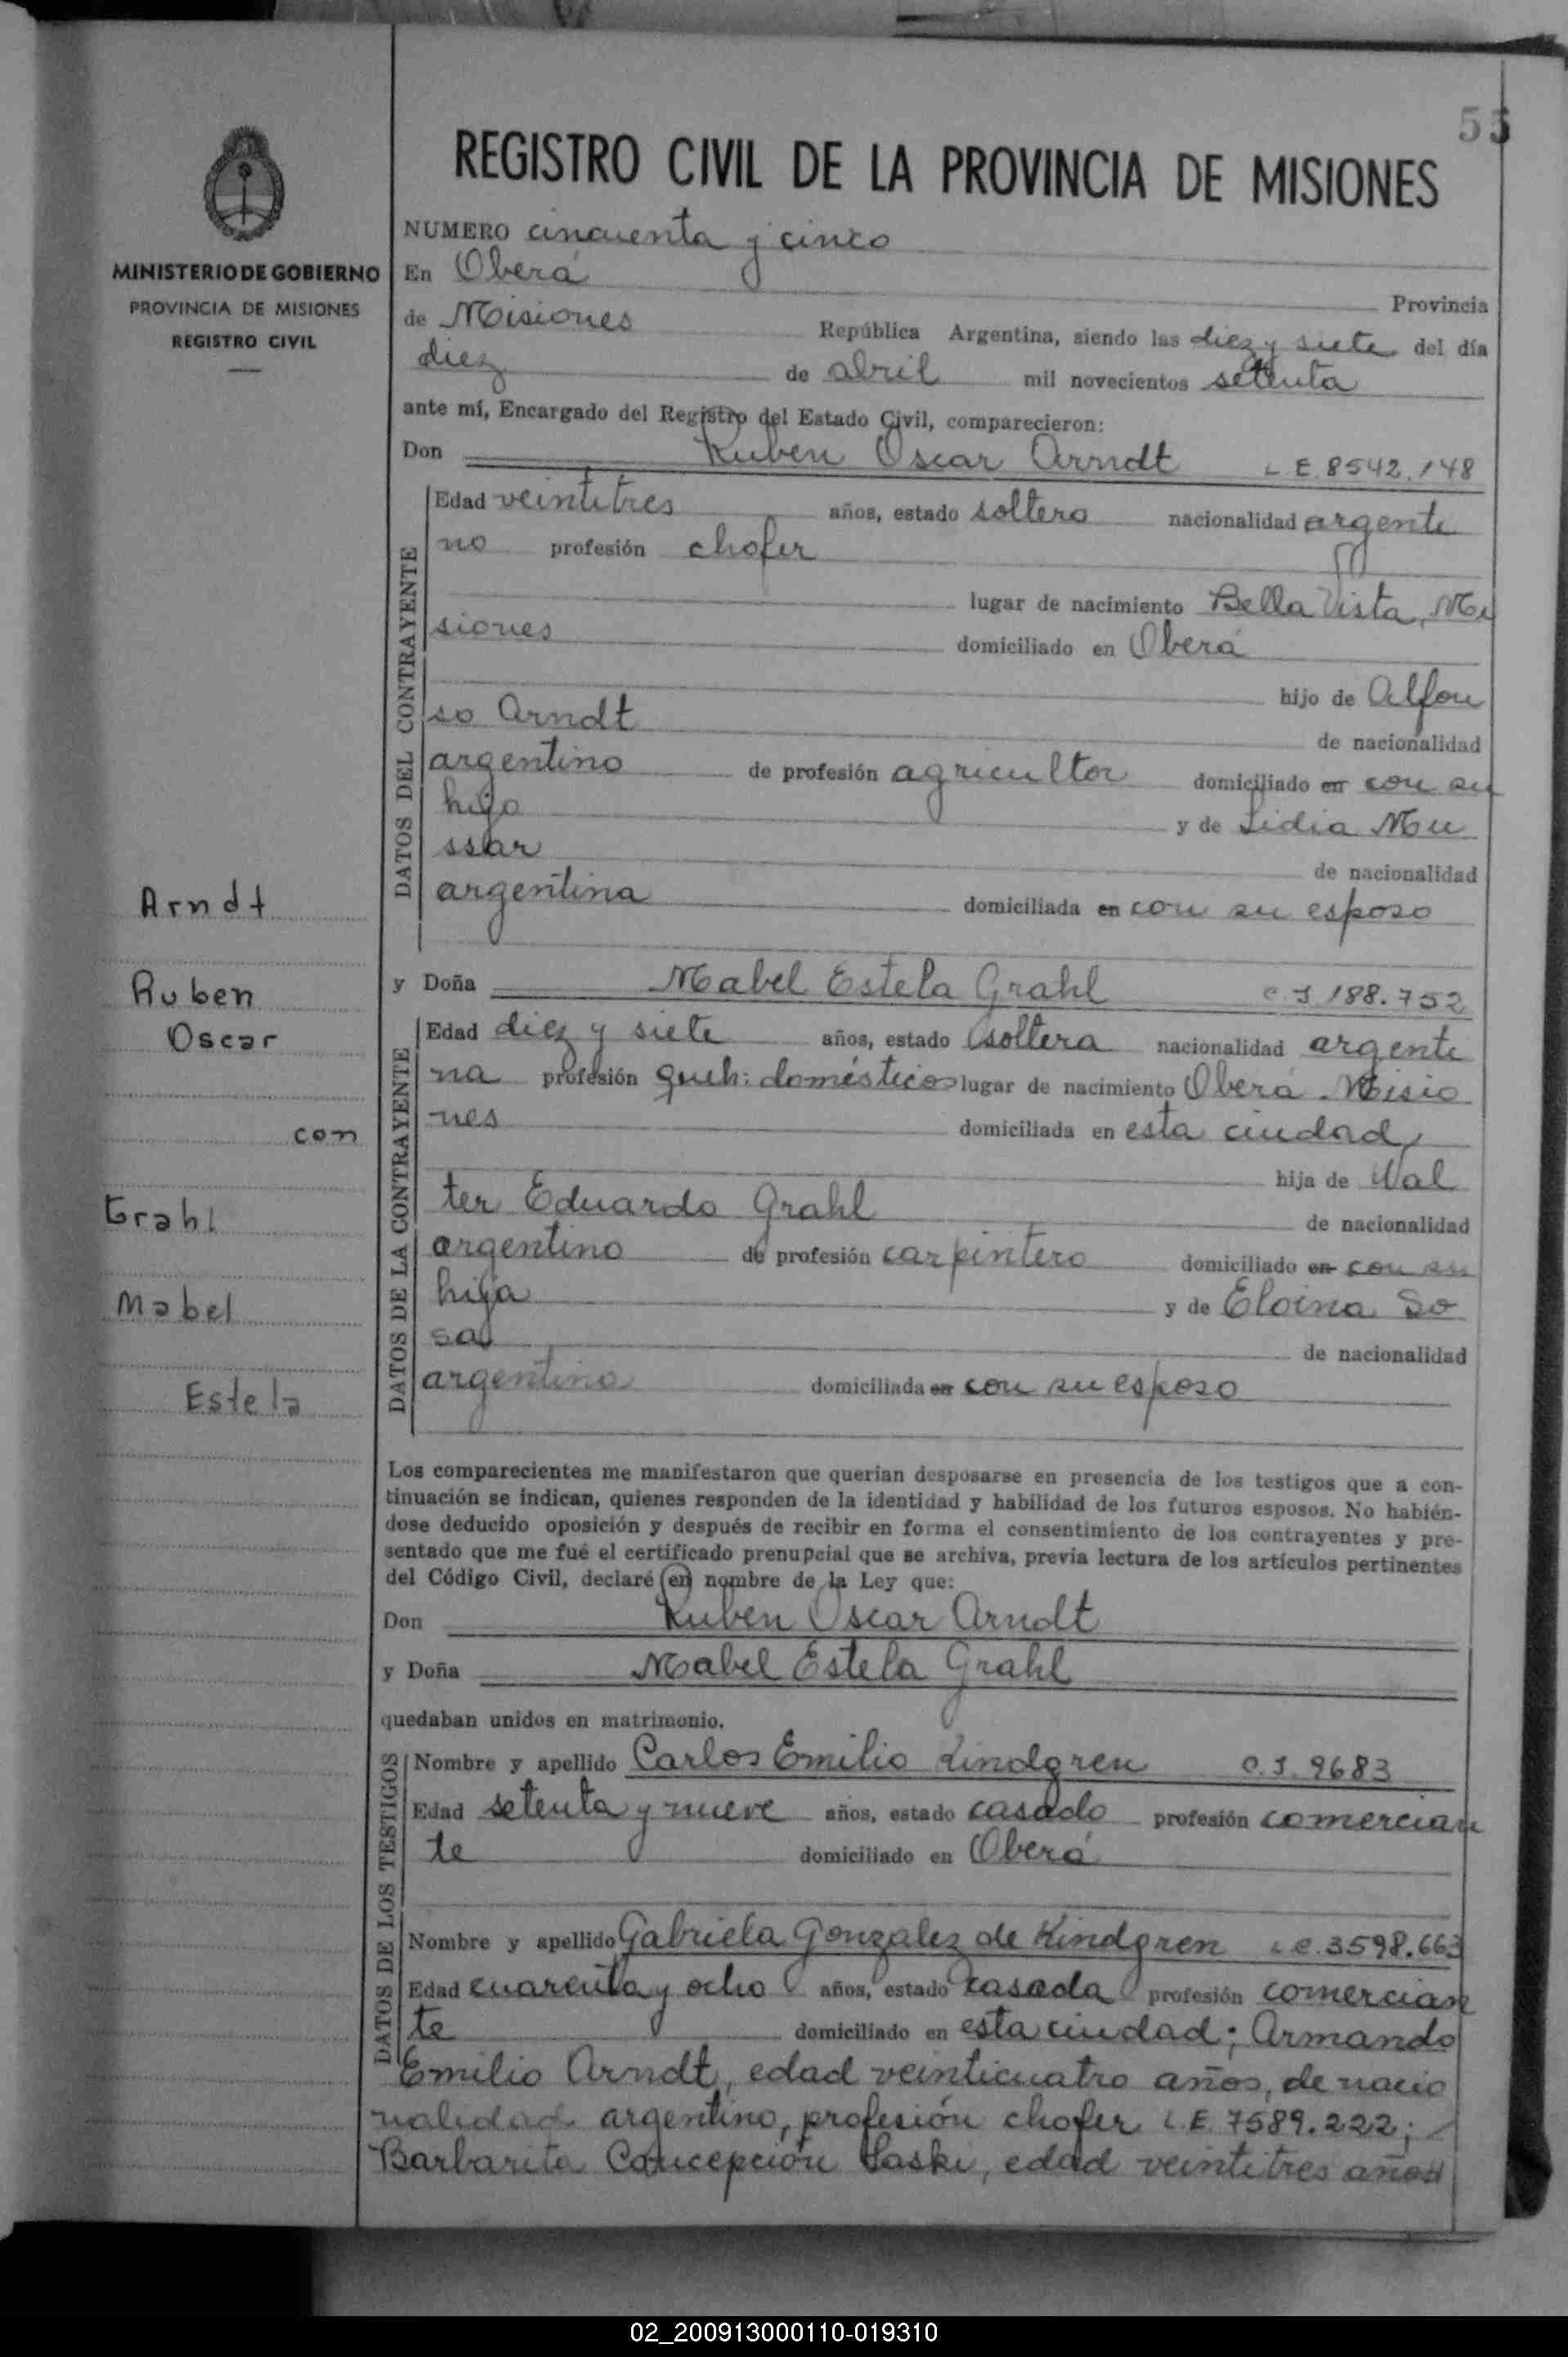 55
REGISTRO CIVIL DE LA PROVINCIA DE MISIONES
MINISTERIO DE GOBIERNO
PROVINCIA DE MISIONES
REGISTRO CIVIL
NUMERO cincuenta y cinco
En Oberá Provincia
de Misiones República Argentina, siendo las diez y siete del día
diez de abril mil novecientos setenta
ante mí, Encargado del Registro del Estado Civil, comparecieron:
Don Ruben Oscar Arndt L.E. 8542.148
DATOS DEL CONTRAYENTE
Edad veintitres años, estado soltero nacionalidad argenti
no profesión chofer
lugar de nacimiento Bella Vista, Mi
siones domiciliado en Oberá
hijo de Alfon
so Arndt de nacionalidad
argentino de profesión agricultor domiciliado en con su
hijo y de Lidia Mu
ssar de nacionalidad
argentina domiciliada en con su esposo
Arndt
Ruben
Oscar
con
Grahl
Mabel
Estela
y Doña Mabel Estela Grahl C.I 188.752
DATOS DE LA CONTRAYENTE
Edad diez y siete años, estado soltera nacionalidad argenti
na profesión queh: domésticos lugar de nacimiento Oberá Misio
nes domiciliada en esta ciudad,
hija de Wal
ter Eduardo Grahl de nacionalidad
argentino de profesión carpintero domiciliado en con su
hija y de Eloina So
sa de nacionalidad
argentina domiciliada en con su esposo
Los comparecientes me manifestaron que querían desposarse en presencia de los testigos que a con-
tinuación se indican, quienes responden de la identidad y habilidad de los futuros esposos. No habién-
dose deducido oposición y después de recibir en forma el consentimiento de los contrayentes y pre-
sentado que me fué el certificado prenupcial que se archiva, previa lectura de los artículos pertinentes
del Código Civil, declaré en nombre de la Ley que:
Don Ruben Oscar Arndt
y Doña Mabel Estela Grahl
quedaban unidos en matrimonio.
DATOS DE LOS TESTIGOS
Nombre y apellido Carlos Emilio Kindgren C.I. 9683
Edad setenta y nueve años, estado casado profesión comercian
te domiciliado en Oberá
Nombre y apellido Gabriela Gonzalez de Kindgren L.C. 3598.663
Edad cuarenta y ocho años, estado casada profesión comercian
te domiciliado en esta ciudad; Armando
Emilio Arndt, edad veinticuatro años, de nacio
nalidad argentino, profesión chofer L.E. 7589.222;
Barbarita Concepción edad veintitres años
02_200913000110-019310